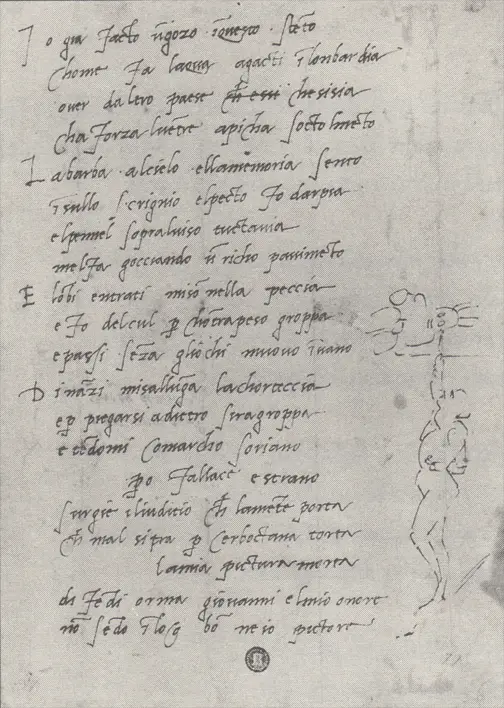 Jo gia facto ũgozo ĩquesto stẽto
chome fa laqua agacti ĩ lonbardia
over daltro paese ch̃ essi chesisia
cha forza lvẽtre apicha socto lmẽto
La barba alcielo ellamemoria sento
ĩsullo scrignio elpecto fo darpia
elpennel sopralviso tuctavia
melfa gocciando ũ richo pavimẽto
E lõbi entrati misõ nella peccia
e fo delcul p chõtrapeso groppa
epassi sẽza gliochi muovo ĩvano
Dinãzi misallũga lachorteccia
ep piegarsi adietro siragroppa
e tẽdomi comarcho soriano
po fallace e strano
surgie iliuditio ch̃ lamẽte porta
ch̃ mal sipra p cerboctana torta
lamia pictura morta
difedi orma giovanni elmio onore
nõ sẽdo ĩ log bõ ne io pictore